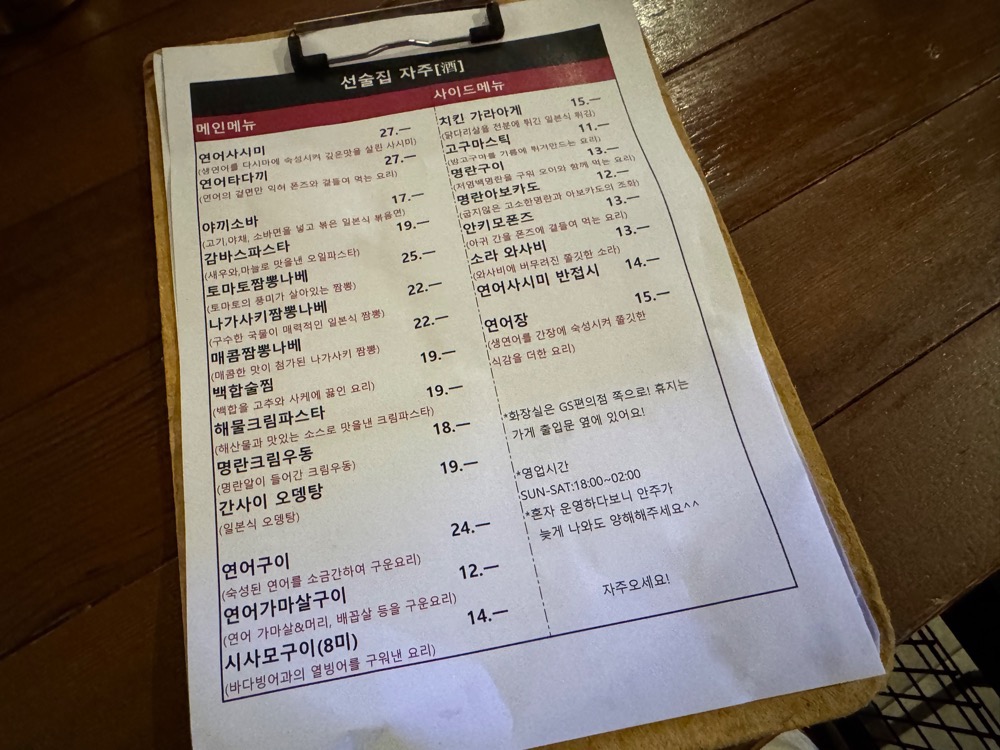 선술집 자주[酒]
메인메뉴
연어사시미 27.一
(생연어를 다시마에 숙성시켜 깊은맛을 살린 사시미)
연어타다끼 27.一
(연어의 겉면만 익혀 폰즈와 곁들여 먹는 요리)
야끼소바 17.一
(고기,야채, 소바면을 넣고 볶은 일본식 볶음면)
감바스파스타 19.一
(새우와,마늘로 맛을낸 오일파스타)
토마토짬뽕나베 25.一
(토마토의 풍미가 살아있는 짬뽕)
나가사키짬뽕나베 22.一
(구수한 국물이 매력적인 일본식 짬뽕)
매콤짬뽕나베 22.一
(매콤한 맛이 첨가된 나가사키 짬뽕)
백합술찜 19.一
(백합을 고추와 사케에 끓인 요리)
해물크림파스타 19.一
(해산물과 맛있는 소스로 맛을낸 크림파스타)
명란크림우동 18.一
(명란알이 들어간 크림우동)
간사이 오뎅탕 19.一
(일본식 오뎅탕)
연어구이 24.一
(숙성된 연어를 소금간하여 구운요리)
연어가마살구이 12.一
(연어 가마살&머리, 배꼽살 등을 구운요리)
시사모구이(8미) 14.一
(바다빙어과의 열빙어를 구워낸 요리)
사이드메뉴
치킨 가라아게 15.一
(닭다리살을 전분에 튀긴 일본식 튀김)
고구마스틱 11.一
(밤고구마를 기름에 튀겨만드는 요리)
명란구이 13.一
(저염백명란을 구워 오이와 함께 먹는 요리)
명란아보카도 12.一
(굽지않은 고소한명란과 아보카도의 조화)
안키모폰즈 13.一
(아귀 간을 폰즈에 곁들여 먹는 요리)
소라 와사비 13.一
(와사비에 버무려진 쫄깃한 소라)
연어사시미 반접시 14.一
연어장 15.一
(생연어를 간장에 숙성시켜 쫄깃한
식감을 더한 요리)
*화장실은 GS편의점 쪽으로! 휴지는
가게 출입문 옆에 있어요!
*영업시간
SUN-SAT:18:00~02:00
*혼자 운영하다보니 안주가
늦게 나와도 양해해주세요^^
자주오세요!